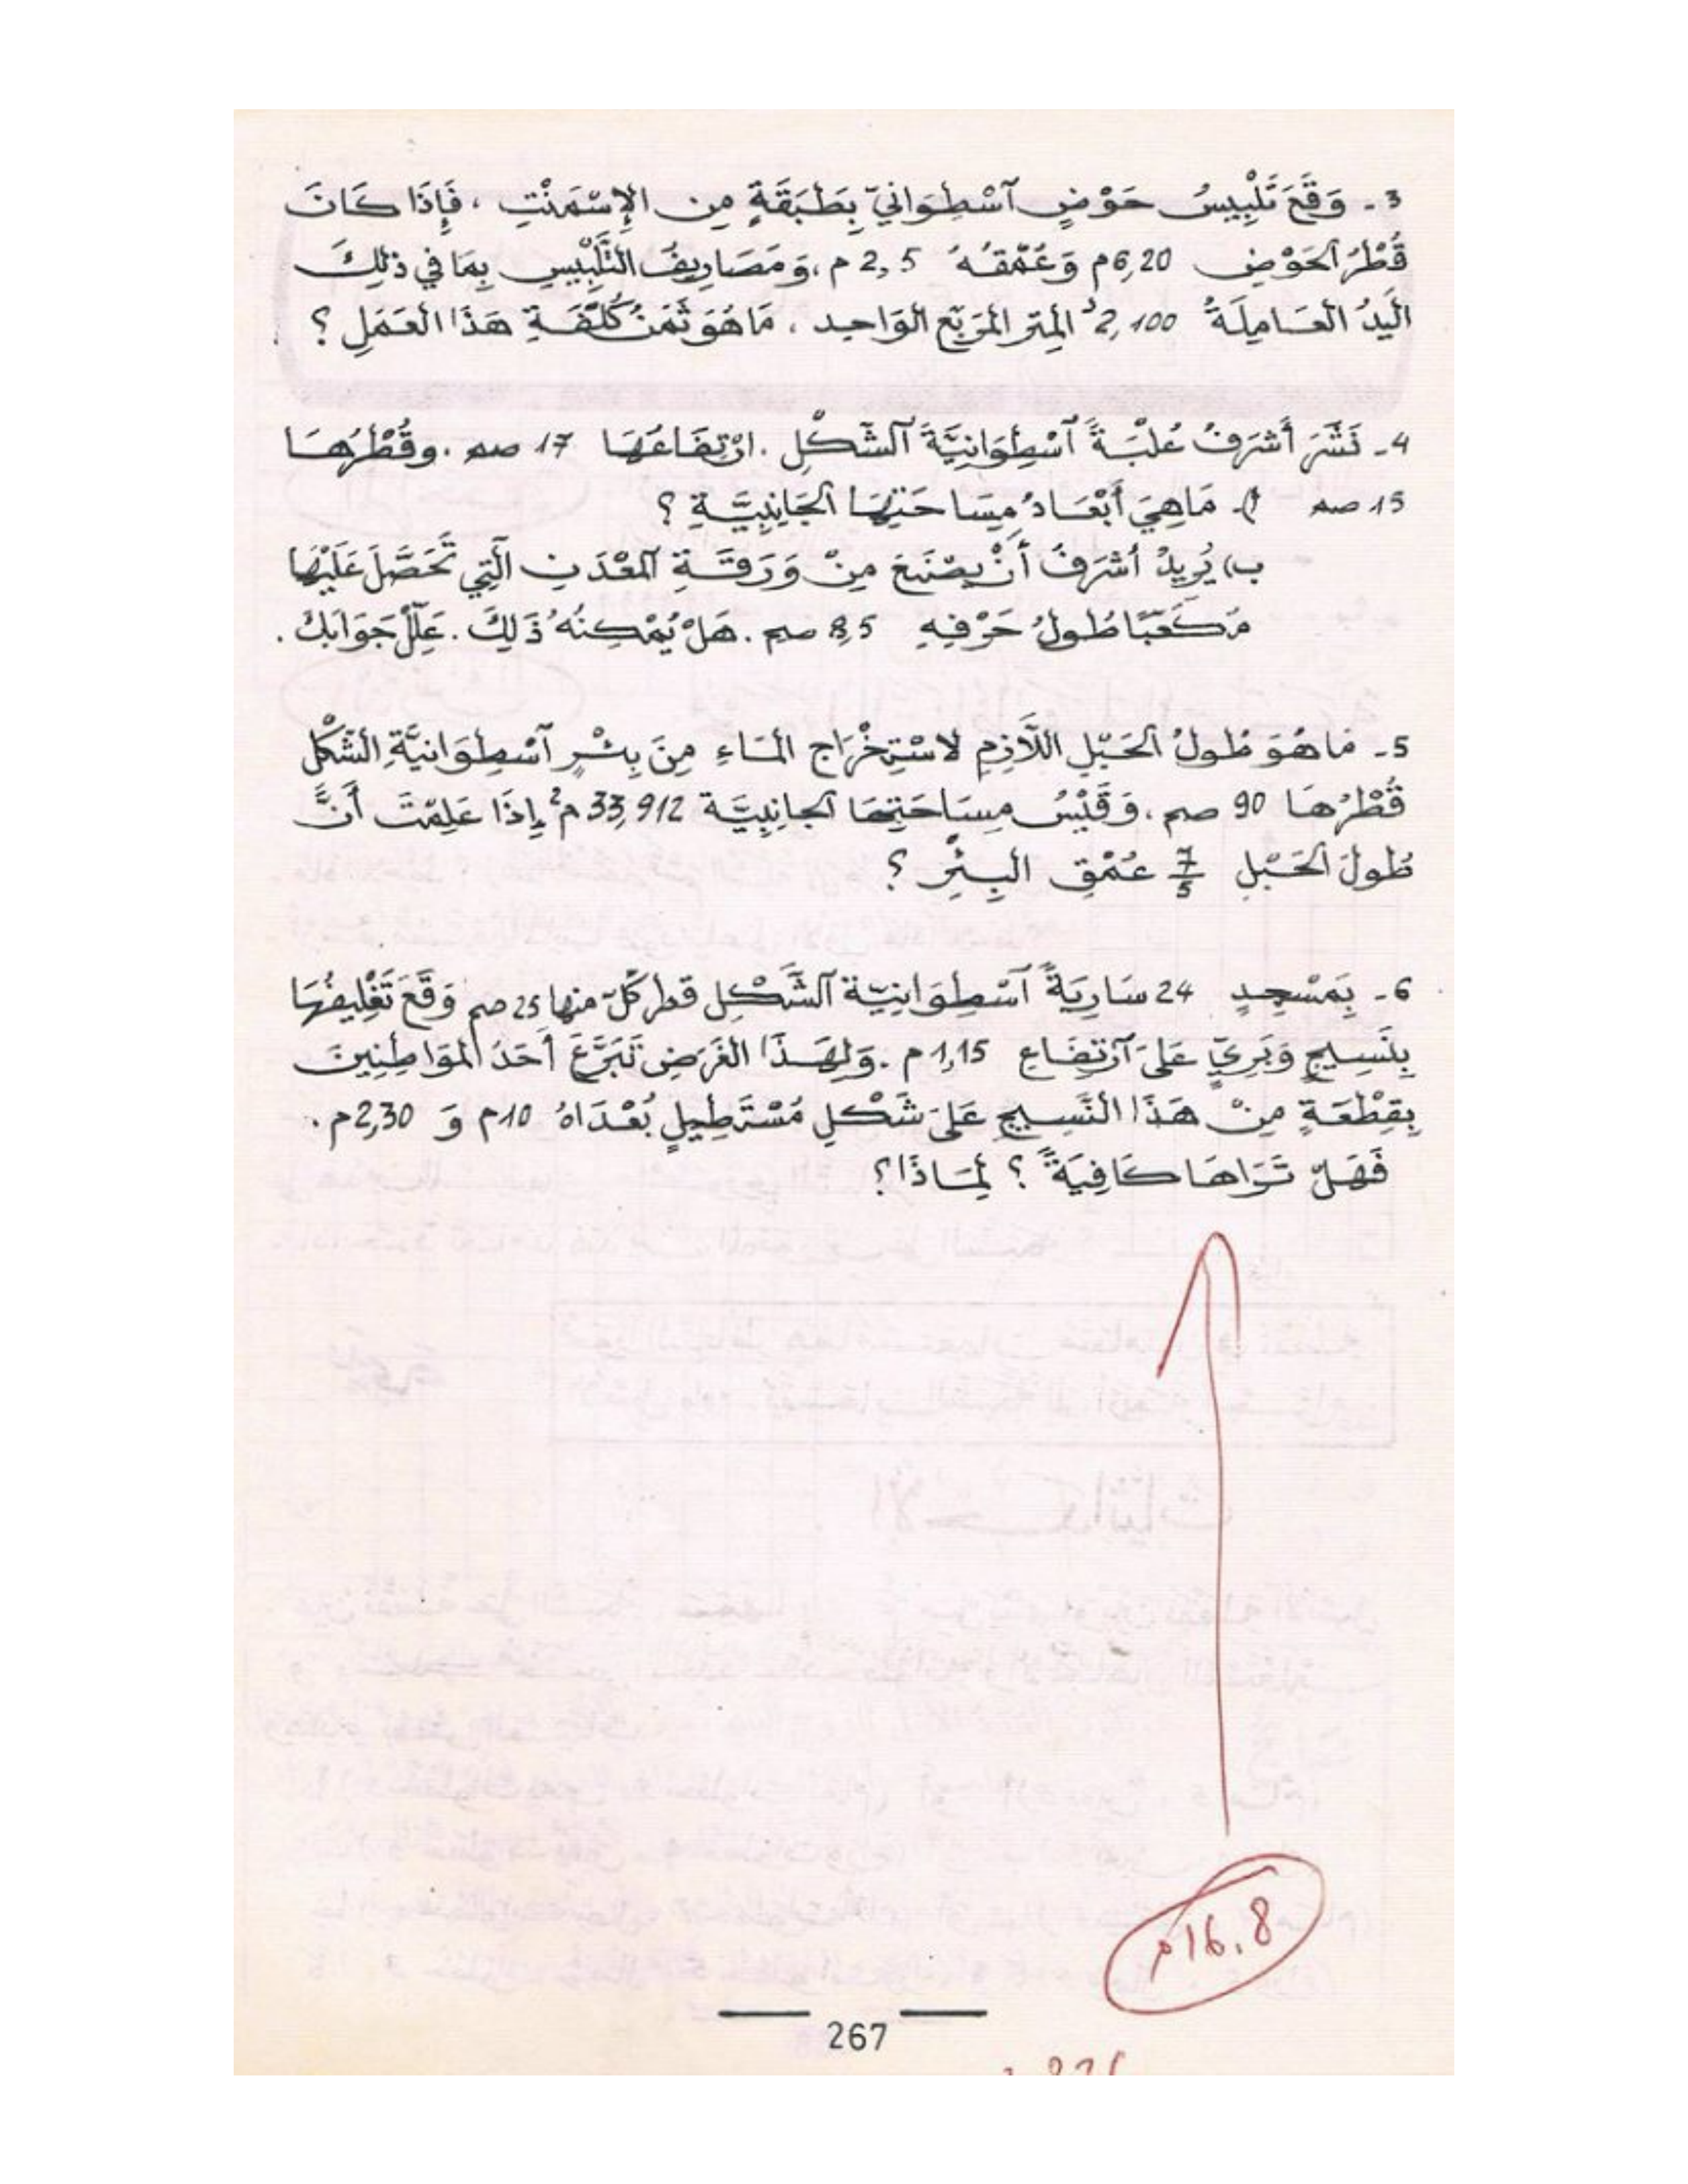 3 - وَقَعَ تَلْبِيسُ حَوْضٍ آسْطِوَانِيّ بِطَبَقَةٍ مِن الإِسْمَنْتِ ، فَإِذَا كَانَ
قُطْرُ الحَوْضِ 6,20م وَعُمْقُهُ 2,5 م ، وَمَصَارِيفُ التَّلْبِيسِ بِمَا في ذلِكَ
الْيَدُ الْعَامِلَةُ 2,100د المِتر المُرَبَّع الوَاحِد ، مَا هُوَ ثَمَنُ كُلْفَةِ هَذَا العَمَلِ ؟
4 - نَشَرَ أَشْرَفُ عُلْبَةً آسْطِوَانِيَّةَ الشَّكْلِ . ارْتِفَاعُهَا 17 صم . وقُطْرُهَا
15 صم أ) - مَا هِيَ أَبْعَادُ مِسَاحَتِهَا الجَانِبِيَّةِ ؟
ب) يُرِيدُ أَشْرَفُ أَنْ يَصْنَعَ مِنْ وَرَقَةِ المَعْدَنِ الَّتِي تَحَصَّلَ عَلَيْهَا
مُكَعَّبًا طُولُ حَرْفِهِ 8,5 صم . هَلْ يُمْكِنُهُ ذَلِكَ . عَلِّلْ جَوَابَكَ .
5 - مَا هُوَ طُولُ الحَبْلِ اللَّازِمِ لاسْتِخْرَاجِ المَاءِ مِنَ بِئْرٍ آسْطِوَانِيَّةِ الشَّكْلِ
قُطْرُهَا 90 صم . وَقَيْسُ مِسَاحَتِهَا الجانِبِيَّة 33,912 م² إِذَا عَلِمْتَ أَنَّ
طُولَ الحَبْلِ 7/5 عُمْقِ البِئْرِ ؟
6 - بِمَسْجِدٍ 24 سَارِيَةً آسْطِوَانِيّة الشَّكْلِ قطر كلّ منها 25 صم وَقَعَ تَغْلِيفُهَا
بِنَسِيجٍ وَبَرِيّ عَلى آرْتِفَاعِ 1,15 م . وَلِهَذَا الغَرَضِ تَبَرَّعَ أَحَدُ المُوَاطِنِينَ
بِقِطْعَةٍ مِنْ هَذَا النَّسِيجِ عَلى شَكْلِ مُسْتَطِيلٍ بُعْدَاهُ 10م وَ 2,30م .
فَهَلْ تَرَاهَا كَافِيَةً ؟ لِمَاذَا ؟
16.8م
267